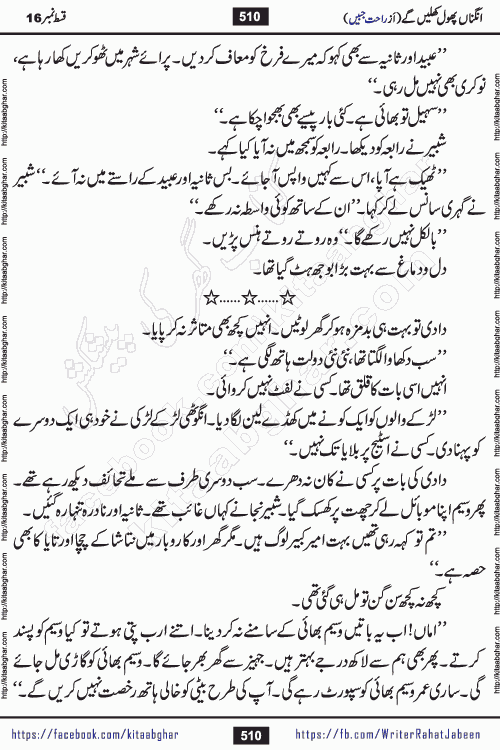 قسط نمبر 16
510
انگناں پھول کھلیں گے (از راحت جبیں)
’’عبید اور ثانیہ سے بھی کہو کہ میرے فرخ کو معاف کر دیں۔ پرائے شہر میں ٹھوکریں کھا رہا ہے،
نوکری بھی نہیں مل رہی۔‘‘
’’سہیل تو بھائی ہے۔ کئی بار پیسے بھی بھجوا چکا ہے۔‘‘
شبیر نے رابعہ کو دیکھا۔ رابعہ کو سمجھ میں نہ آیا کیا کہے۔
’’ٹھیک ہے آپا، اس سے کہیں واپس آ جائے۔ بس ثانیہ اور عبید کے راستے میں نہ آئے۔‘‘ شبیر
نے گہری سانس لے کر کہا۔ ’’ان کے ساتھ کوئی واسطہ نہ رکھے۔‘‘
’’بالکل نہیں رکھے گا۔‘‘ وہ روتے روتے ہنس پڑیں۔
دل و دماغ سے بہت بڑا بوجھ ہٹ گیا تھا۔
☆......☆......☆
دادی تو بہت ہی بدمزہ ہو کر گھر لوٹیں۔ انہیں کچھ بھی متاثر نہ کر پایا۔
’’سب دکھاوا لگتا تھا، نئی نئی دولت ہاتھ لگی ہے۔‘‘
انہیں اسی بات کا قلق تھا۔ کسی نے لفٹ نہیں کروائی۔
’’لڑکے والوں کو ایک کونے میں کھڈے لین لگا دیا۔ انگوٹھی لڑکے لڑکی نے خود ہی ایک دوسرے
کو پہنا دی۔ کسی نے اسٹیج پر بلایا تک نہیں۔‘‘
دادی کی بات پر کسی نے کان نہ دھرے۔ سب دوسری طرف سے ملے تحائف دیکھ رہے تھے۔
پھر وسیم اپنا موبائل لے کر چھت پر کھسک گیا۔ شبیر نجانے کہاں غائب تھے۔ ثانیہ اور نادرہ تنہا رہ گئیں۔
’’تم تو کہہ رہی تھیں بہت امیر کبیر لوگ ہیں۔ مگر گھر اور کاروبار میں نتاشا کے چچا اور تایا کا بھی
حصہ ہے۔‘‘
کچھ نہ کچھ سن گن تو مل ہی گئی تھی۔
’’اماں! اب یہ باتیں وسیم بھائی کے سامنے نہ کر دینا۔ اتنے ارب پتی ہوتے تو کیا وسیم کو پسند
کرتے۔ پھر بھی ہم سے لاکھ درجے بہتر ہیں۔ جہیز سے گھر بھر جائے گا۔ وسیم بھائی کو گاڑی مل جائے
گی۔ ساری عمر وسیم بھائی کو سپورٹ رہے گی۔ آپ کی طرح بیٹی کو خالی ہاتھ رخصت نہیں کریں گے۔‘‘
https://facebook.com/kitaabghar
510
https://fb.com/WriterRahatJabeen
http://kitaabghar.com